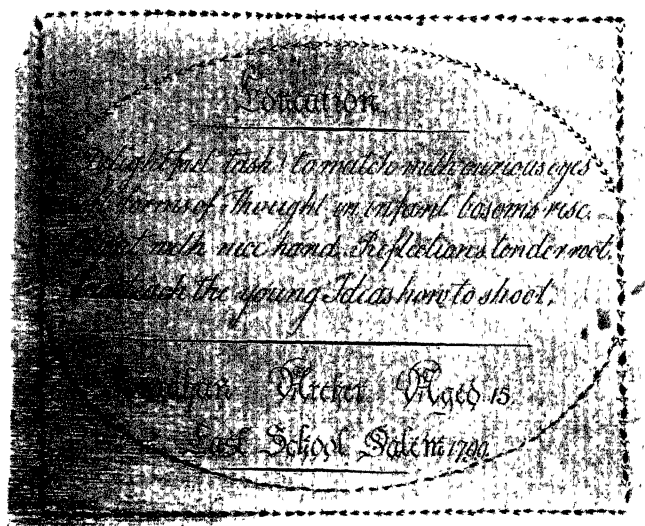 Education
Delightful task! to watch with curious eyes
forms of Thought in infant bosoms rise,
with nice hand Reflections tender root,
teach the young Ideas how to shoot.
Archer Aged 15
East School Salem 1790